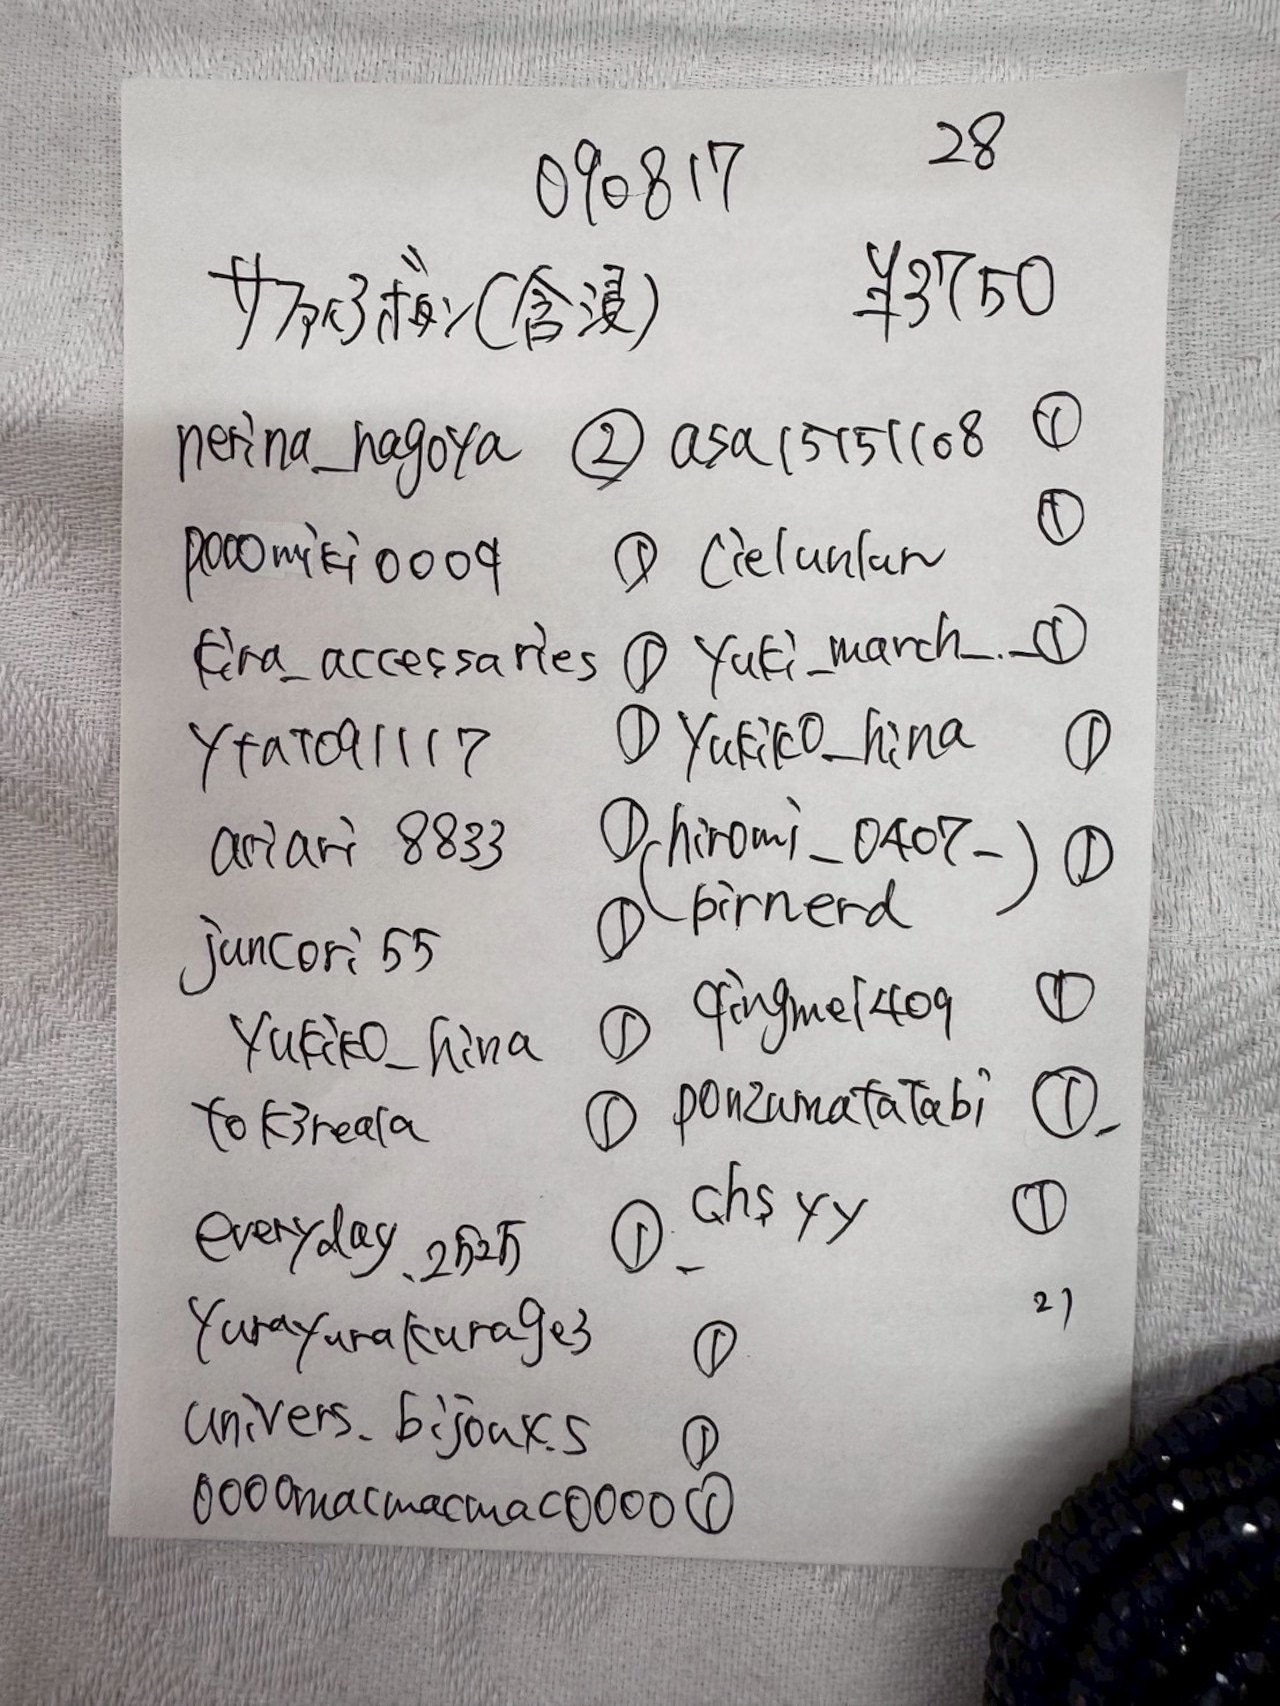 28
090817
サファイヤボタン(含浸) ¥3750
nerina_nagoya ②
pocomiki0009 ①
kira_accessaries ①
ytat091117 ①
ariari 8833 ①
juncori55 ①
yukiko_hina ①
tok3reala ①
everyday_2525 ①
yurayurakurage3 ①
univers._bijoux.s ①
0000macmacmac0000 ①
asa15151108 ①
cielunlun ①
yuki_march_._ ①
yukiko_hina ①
(hiromi_0407_) ①
(birnerd
qingmei409 ①
ponzumatatabi ①
_chsyy ①
21